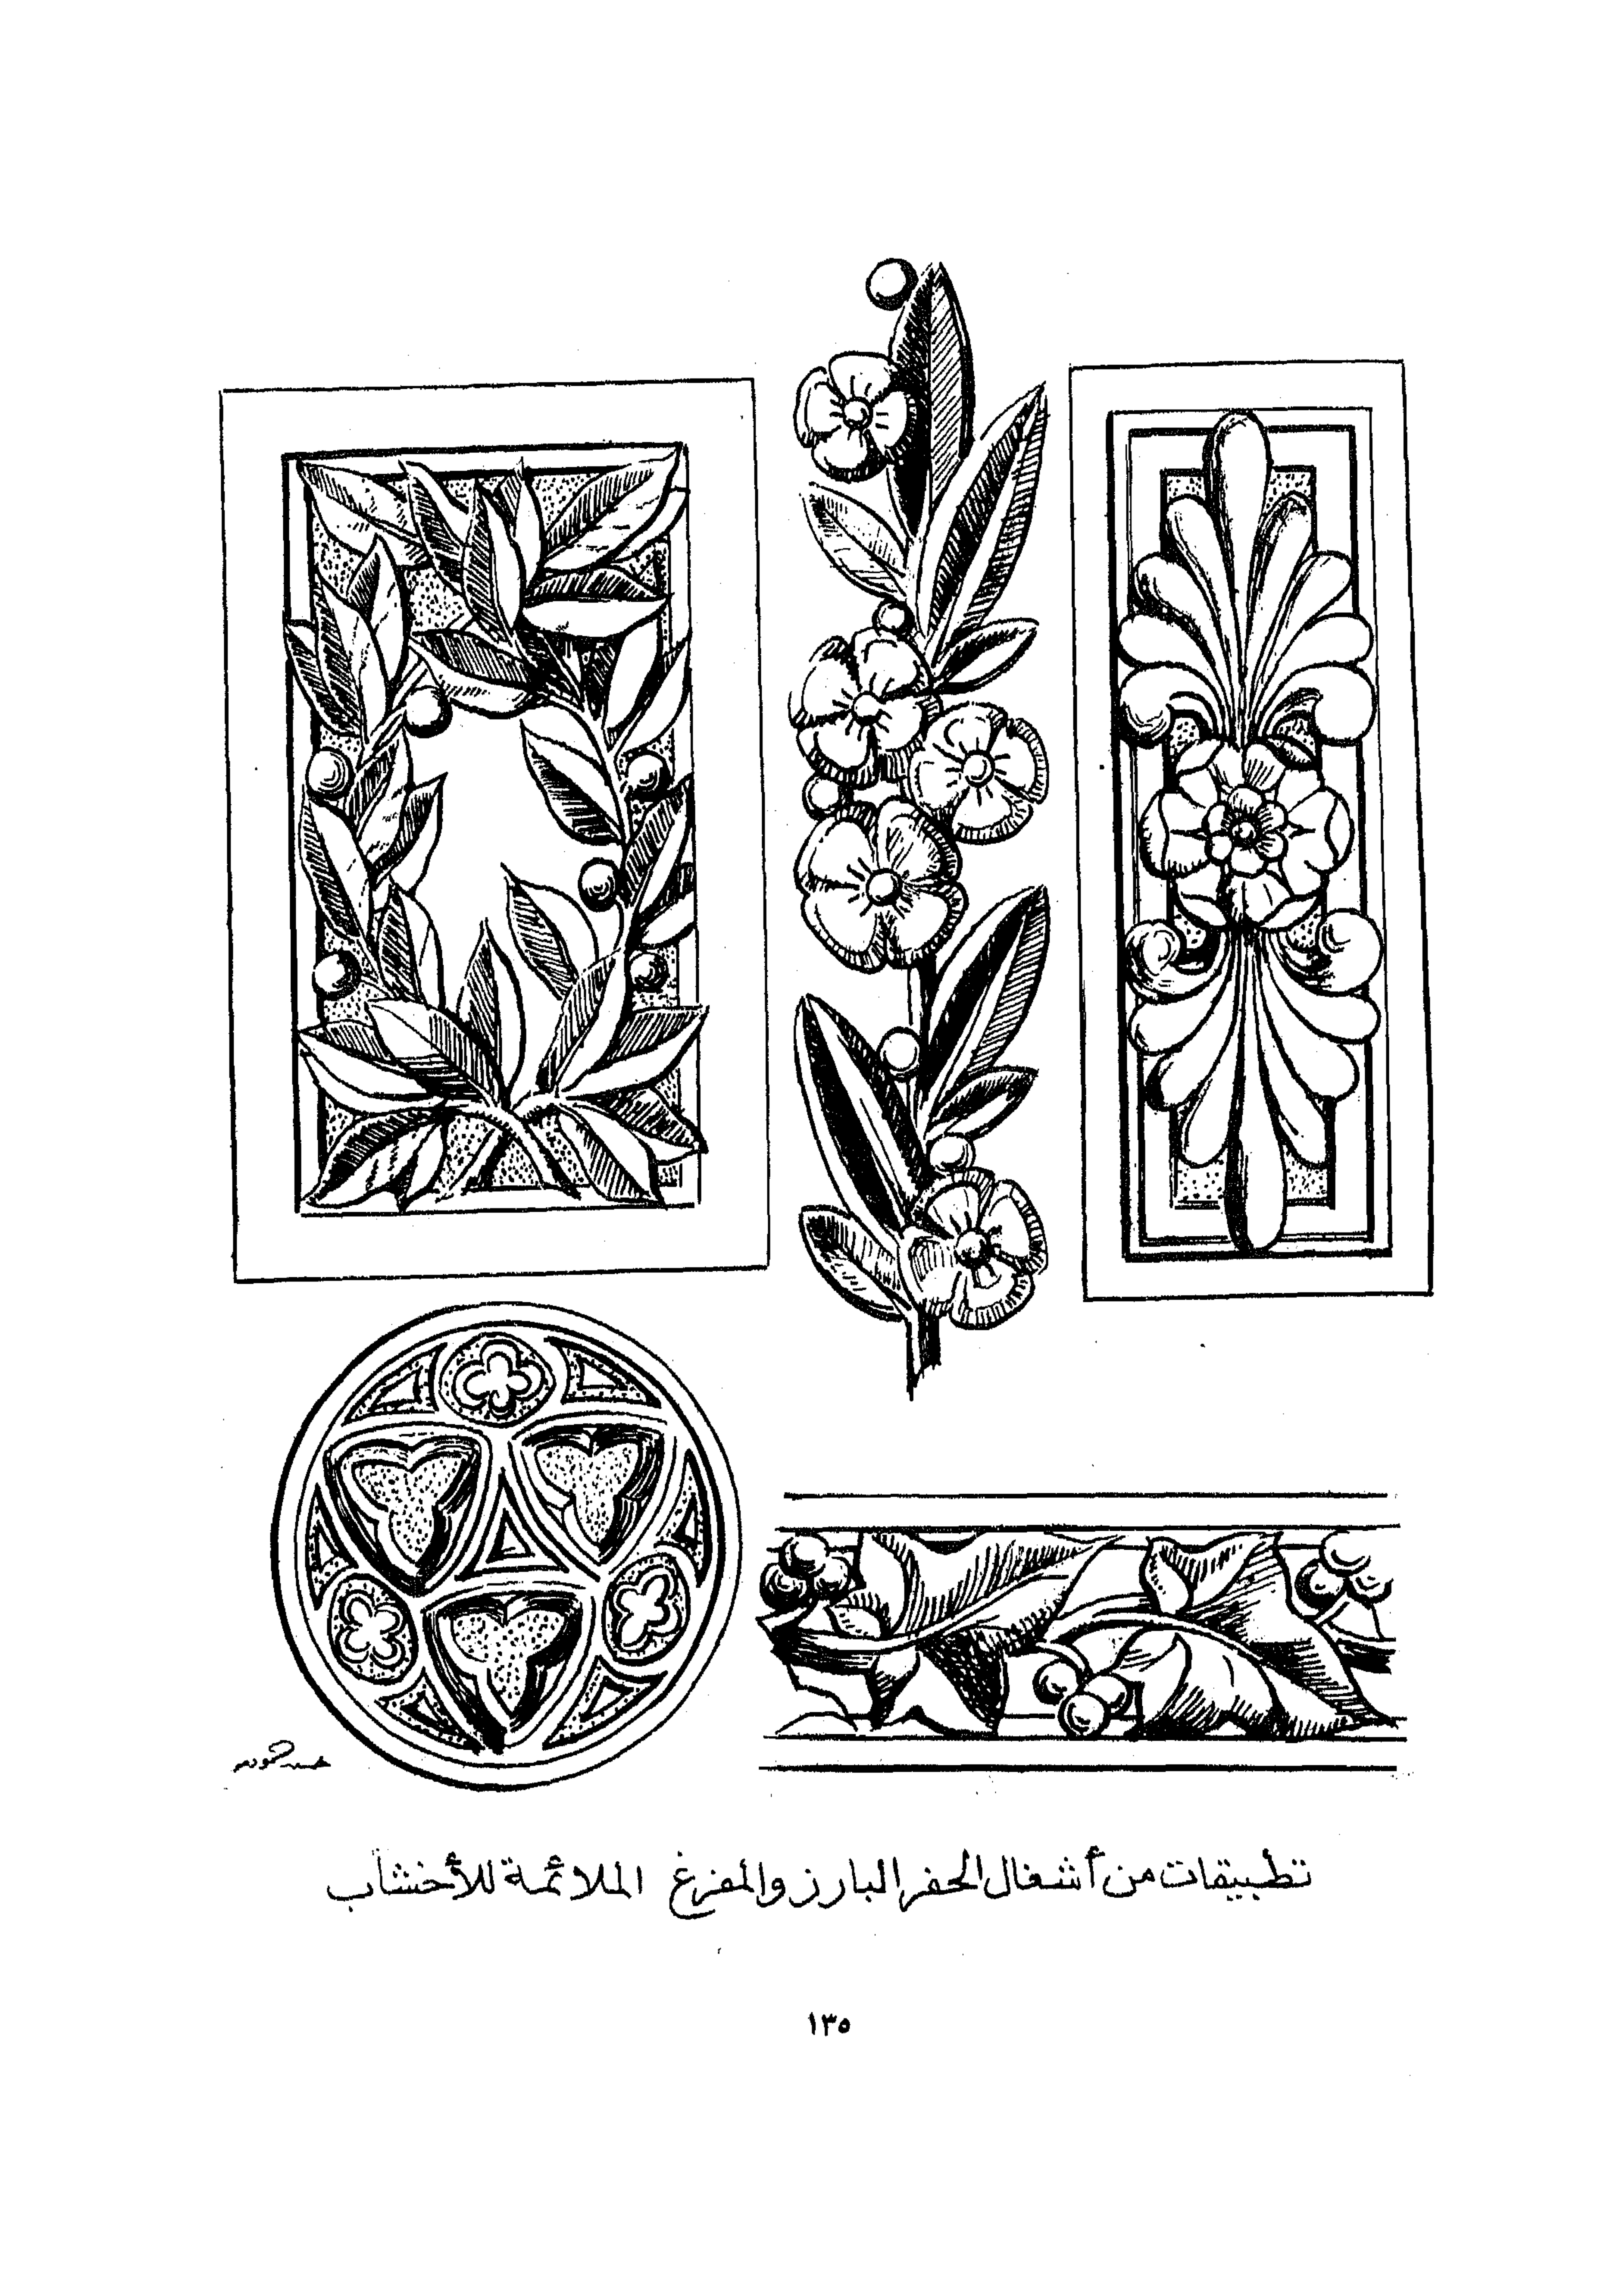 تطبيقات من أشغال الحفر البارز والمفرغ الملائمة للأخشاب
١٣٥